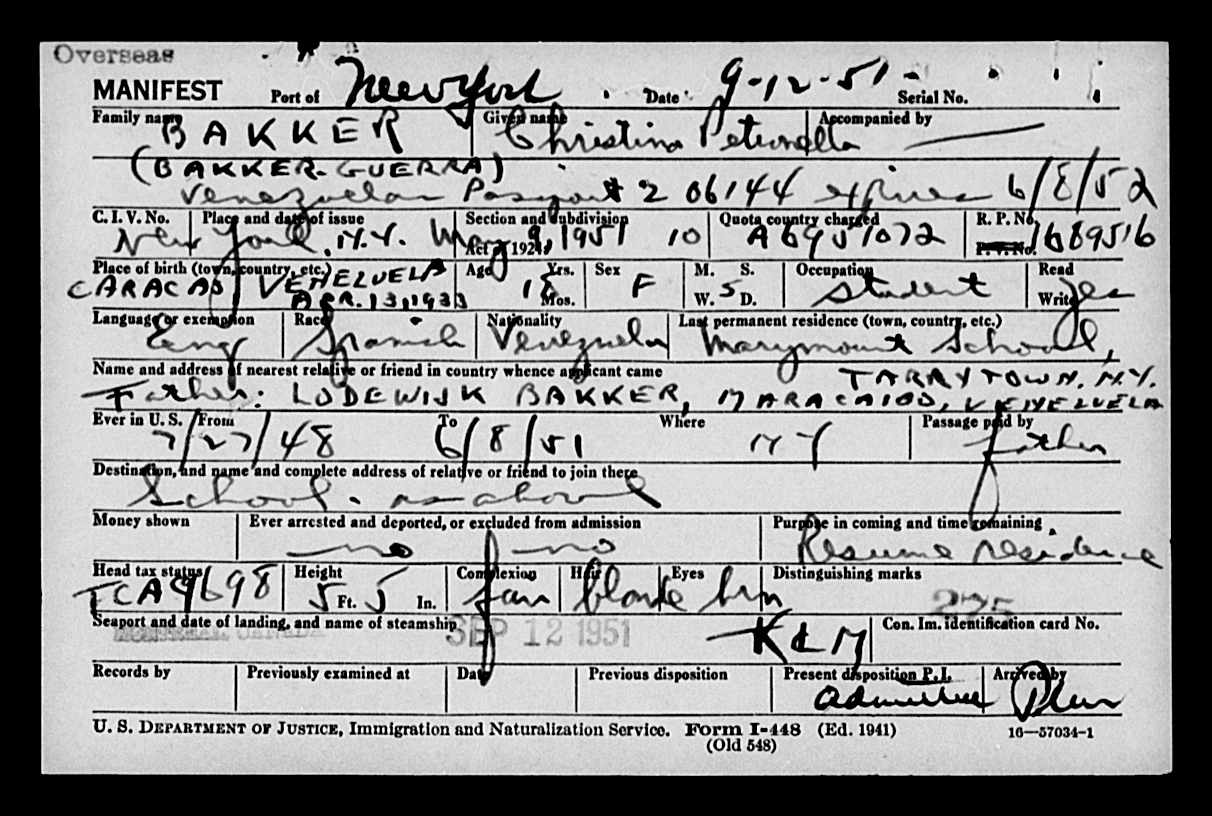 Overseas
MANIFEST Port of New York Date 9-12-51 Serial No.
Family name BAKKER Given name Christina Petronella Accompanied by —
(BAKKER-GUERRA)
Venezuelan Passport # 206144 expires 6/8/52
C. I. V. No. Place and date of issue Section and subdivision Quota country charged R. P. No.
New York, N.Y. May 9, 1951 Act of 1924, 10 A6951072 P. V. No. 1689516
Place of birth (town, country, etc.) Age Yrs. Sex M. S. Occupation Read
CARACAS, VENEZUELA 18 Mos. F W. S D. Student Write yes
APR. 13, 1933
Language or exemption Race Nationality Last permanent residence (town, country, etc.)
Eng Spanish Venezuelan Marymount School,
Name and address of nearest relative or friend in country whence applicant came TARRYTOWN. N.Y.
Father: LODEWIJK BAKKER, MARACAIBO, VENEZUELA
Ever in U. S. From To Where Passage paid by
7/27/48 6/8/51 NY father
Destination, and name and complete address of relative or friend to join there
School - as above
Money shown Ever arrested and deported, or excluded from admission Purpose in coming and time remaining
— no — no Resume residence
Head tax status Height Complexion Hair Eyes Distinguishing marks
5 Ft. 5 In. fair blonde brn
275
Seaport and date of landing, and name of steamship Con. Im. identification card No.
MONTREAL, CANADA SEP 12 1951 KLM
Records by Previously examined at Date Previous disposition Present disposition P. I. Arrived by
admitted Plane
U. S. DEPARTMENT OF JUSTICE, Immigration and Naturalization Service. Form I-448 (Ed. 1941) 16—57034-1
(Old 548)